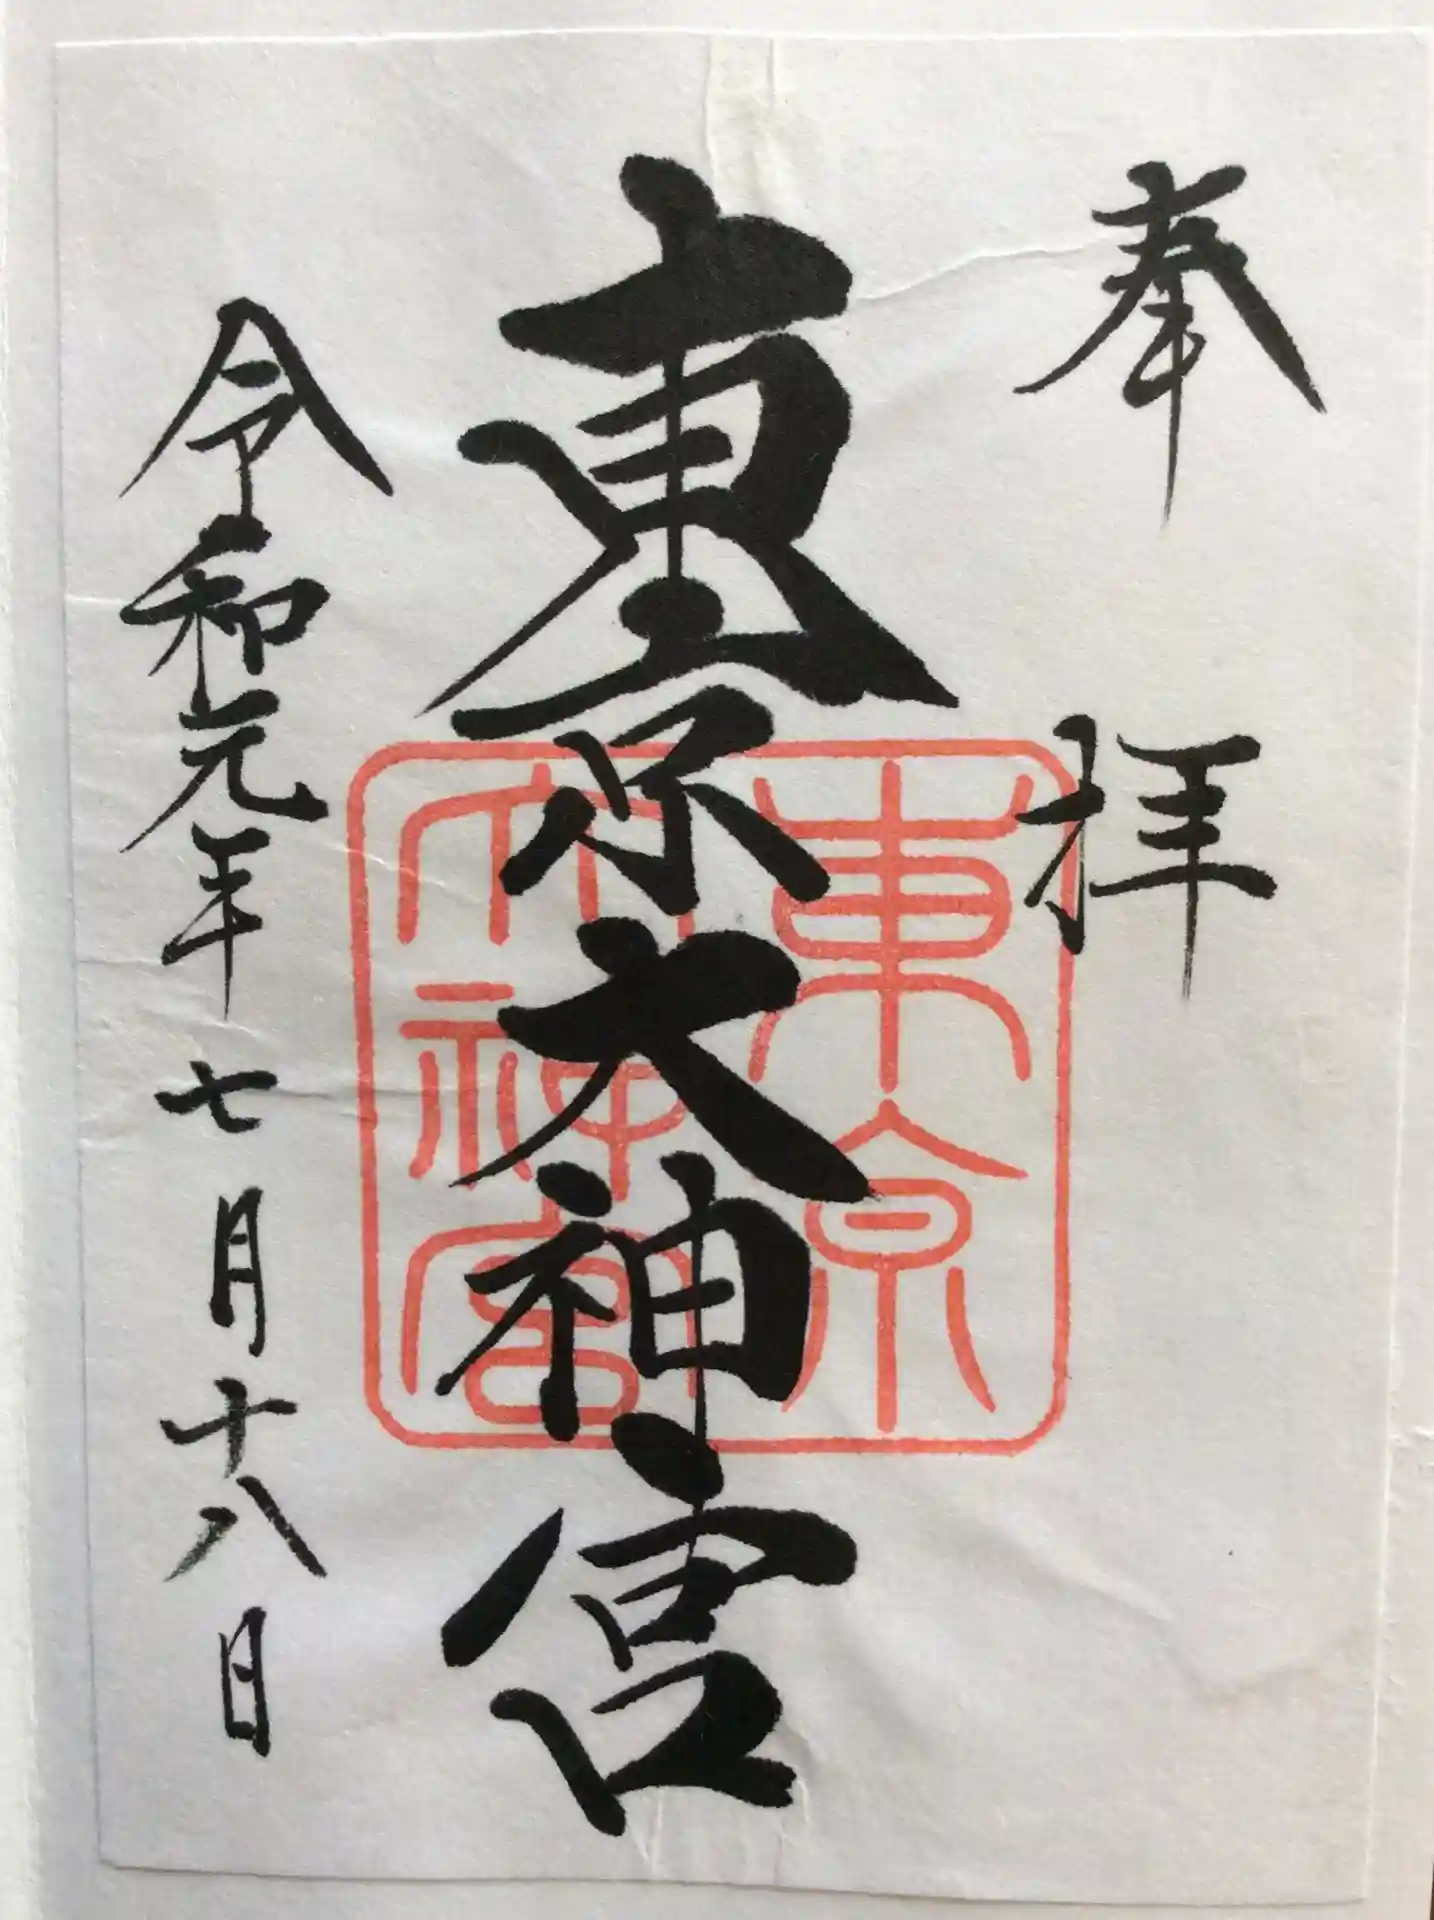 奉拝
東京大神宮
東京
大神宮
令和元年七月十八日